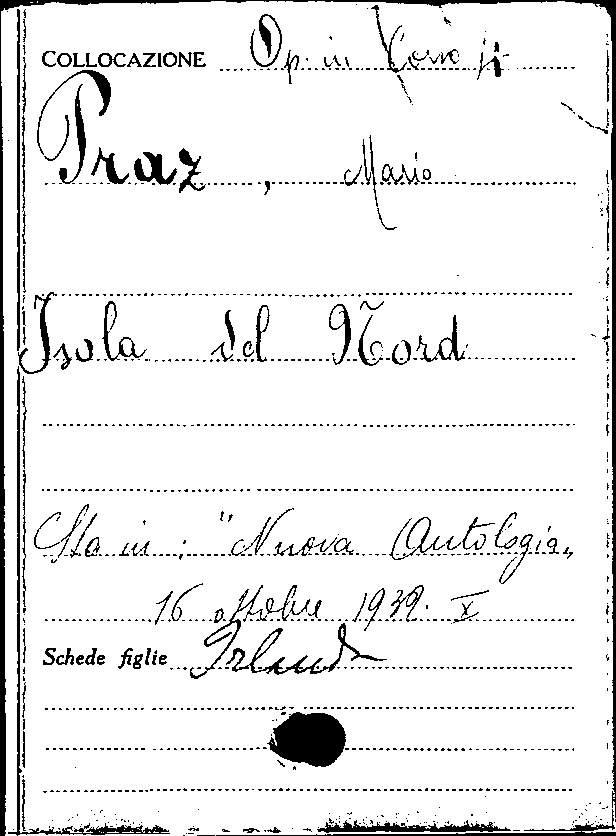 COLLOCAZIONE Op. in Corso
Praz, Mario
Isola del Nord
Sta in: "Nuova Antologia„
16 ottobre 1932. X
Schede figlie Irlanda